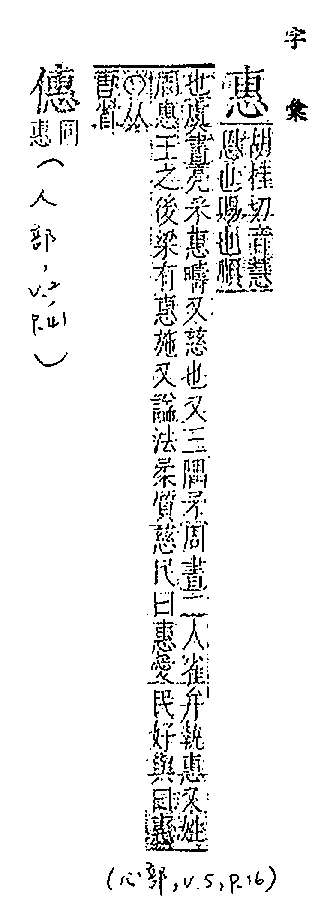 字彙
惠
胡桂切音慧
恩也賜也順
也虞書亮采惠疇又慈也又三隅矛周書二人雀弁執惠又姓
周惠王之後梁有惠施又諡法柔質慈民曰惠愛民好與曰惠
从
省
(心部,v.5,p.16)
僡
同
惠
(人部,v.2,p.41)